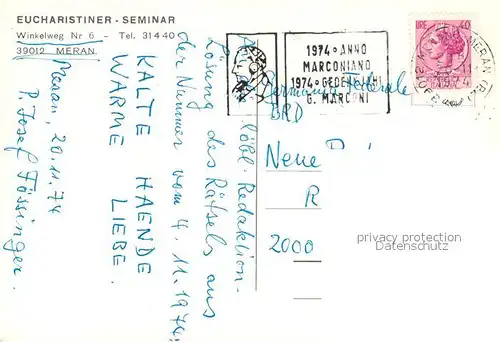 EUCHARISTINER - SEMINAR
Winkelweg Nr 6 - Tel. 31440
39012 MERAN
Meran 20.11.74
P. Josef Tössinger.
KALTE HAENDE
WARME LIEBE
An die löbl. Redaktion-
Lösung des Rätsels aus
der Nummer vom 4.11.1974:
1974 · ANNO
MARCONIANO
1974 · GEDENKJAHR
G. MARCONI
LIRE 40
MERAN
Germania Federale
BRD
Neue
R
2000
privacy protection
Datenschutz